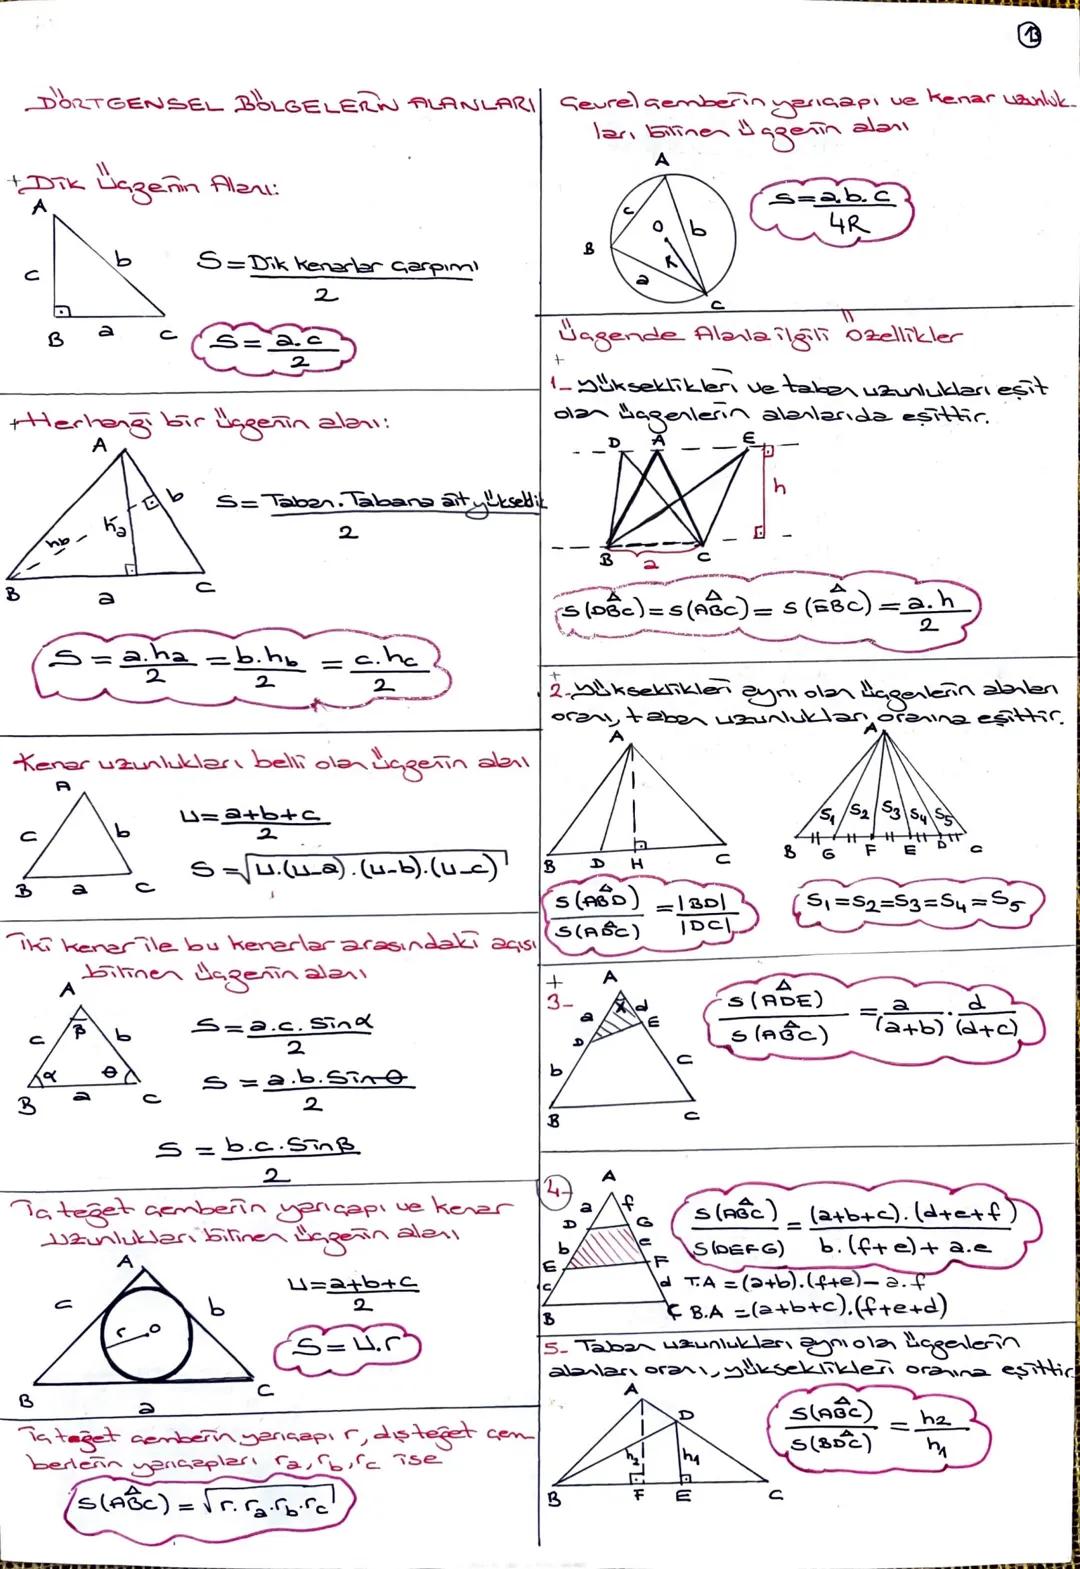 13
DÖRTGENSEL BÖLGELERİN ALANLARI
+Dik Üçgenin Alanı:
A
c
b
B
a
C
S = Dik Kenarlar Çarpımı
2
S = a.c
2
+Herhangi bir üçgenin alanı:
A
b
ha
hb
B
a
C
S = Taban.Tabana ait yükseklik
2
S = a.ha = b.hb = c.hc
2 2 2
Kenar uzunlukları belli olan üçgenin alanı
A
c
b
B
a
C
U = a+b+c
2
S = √U.(U-a).(U-b).(U-c)
İki kenar ile bu kenarlar arasındaki açısı
bilinen üçgenin alanı
A
β
c
b
α
θ
B
a
C
S = a.c.Sinα
2
S = a.b.Sinθ
2
S = b.c.Sinβ
2
İç teğet çemberin yarıçapı ve kenar
uzunlukları bilinen üçgenin alanı
A
c
b
r
O
B
a
C
U = a+b+c
2
S = U.r
İç teğet çemberin yarıçapı r, dış teğet çem
berlerin yarıçapları ra, rb, rc ise
S(ABC) = √r.ra.rb.rc
Çevrel çemberin yarıçapı ve kenar uzunluk-
ları bilinen üçgenin alanı
A
c
O
b
B
R
a
C
S = a.b.c
4R
Üçgende Alanla ilgili Özellikler
+
1- Yükseklikleri ve taban uzunlukları eşit
olan üçgenlerin alanlarıda eşittir.
D A E
h
B
a
C
S(DBC) = S(ABC) = S(EBC) = a.h
2
+
2- Yükseklikleri aynı olan üçgenlerin alanları
oranı, taban uzunlukları oranına eşittir.
A
B D H C
S(ABD) = |BD|
S(ABC) |DC|
A
S1 S2 S3 S4 S5
B G F E D C
S1=S2=S3=S4=S5
+
3-
A
a
d
D
E
b
c
B
C
S(ADE) = a . d
S(ABC) (a+b) (d+c)
4-
A
a
f
D
G
b
e
E
F
c
d
B
C
S(ABC) = (a+b+c).(d+e+f)
S(DEFG) b.(f+e)+a.e
T.A = (a+b).(f+e)-a.f
B.A = (a+b+c).(f+e+d)
5- Taban uzunlukları aynı olan üçgenlerin
alanları oranı, yükseklikleri oranına eşittir
A
D
h2
h1
B F E C
S(ABC) = h2
S(BDC) h1